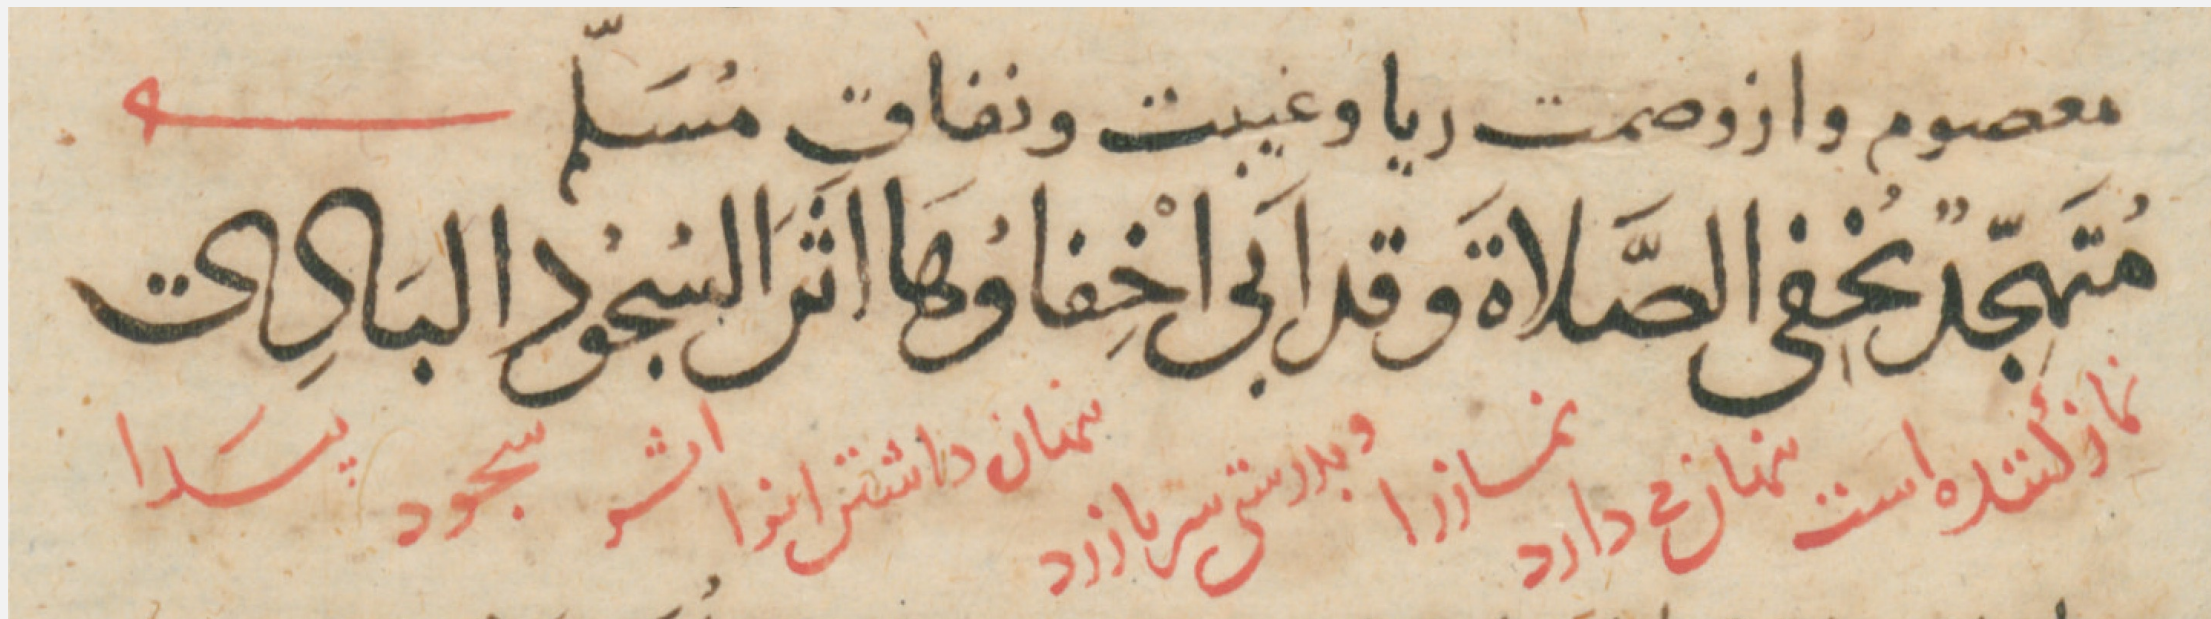 معصوم و از وصمت ریا و غیبت و نفاق مُسَلّم
مُتَهَجّدٌ يُخفى الصَّلاةَ وقد اَبى اخْفِاوُهَا اثَرَ السُجُود البَادِى
نماز کننده است پنهان می دارد نماز را و بدرستی سر باززد پنهان داشتن انرا اثر سجود پیدا